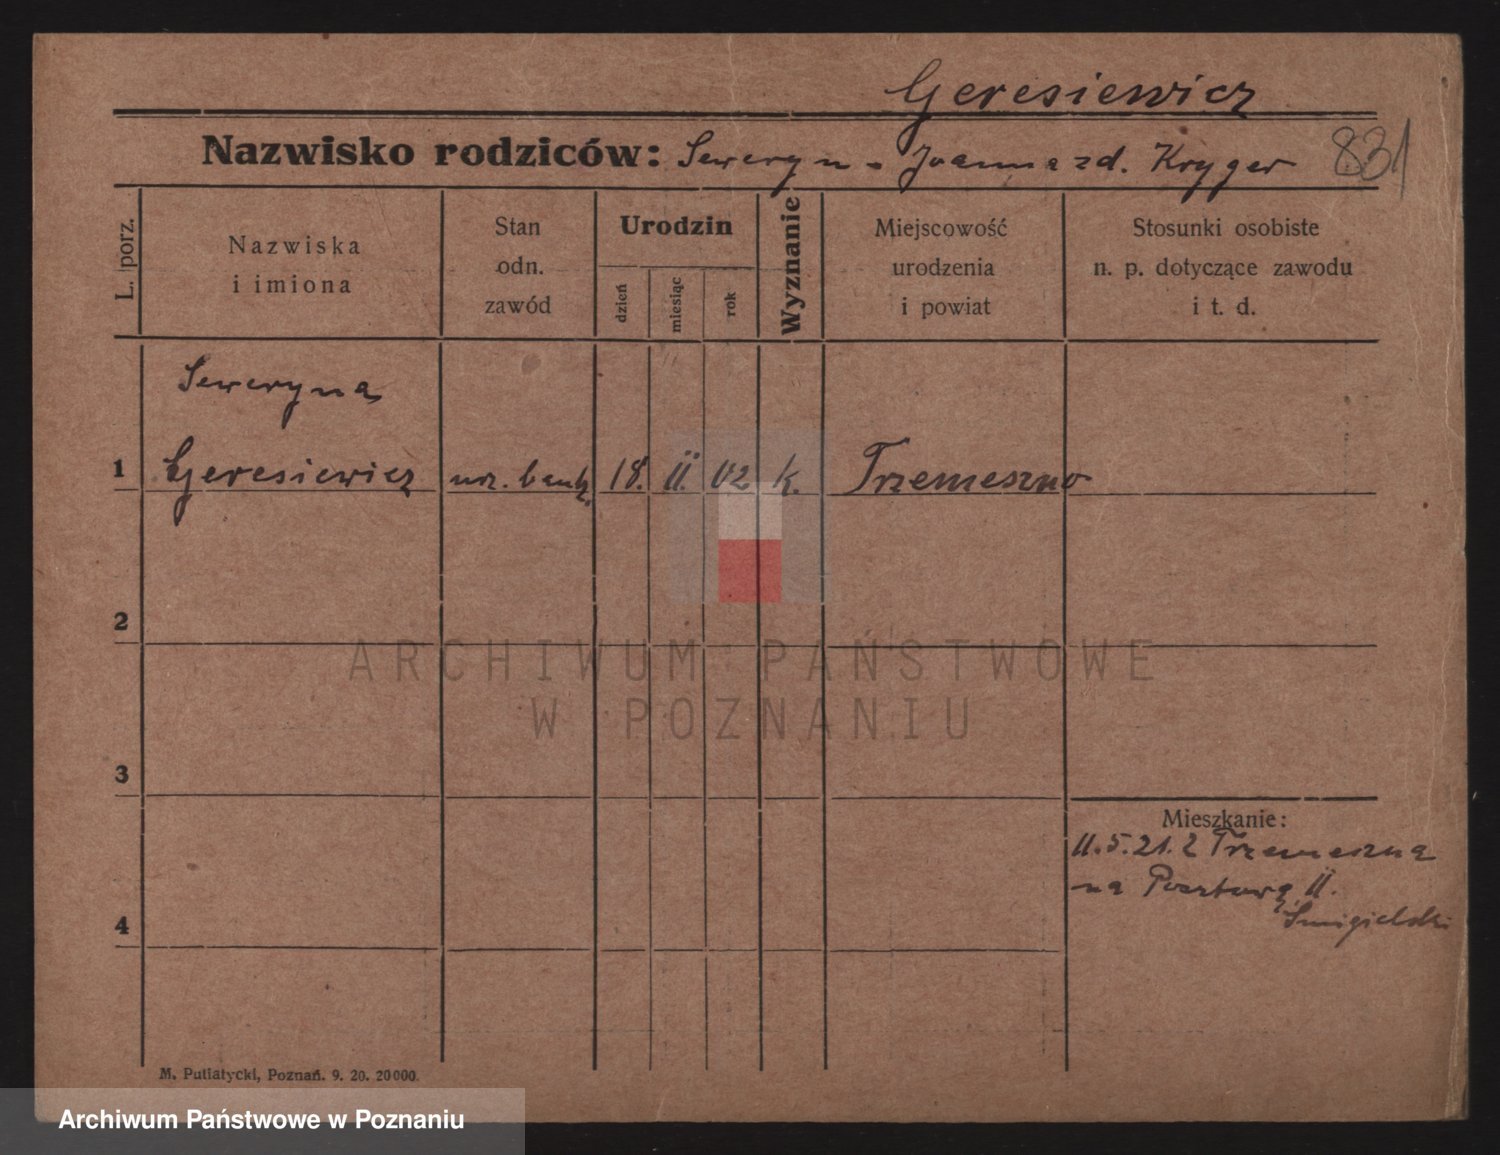 Geresiewicz
Nazwisko rodziców: Seweryn - Joanna zd. Kryger 831
L. porz.
Nazwiska
i imiona
Stan
odn.
zawód
Urodzin
dzień
miesiąc
rok
Wyznanie
Miejscowość
urodzenia
i powiat
Stosunki osobiste
n. p. dotyczące zawodu
i t. d.
Seweryna
1 Geresiewicz urz. bank. 18. II. 02 k. Trzemeszno
2
3
4
Mieszkanie:
11.5.21. z Trzemeszna
na Pocztową 11.
Śmigielski
M. Putiatycki, Poznań. 9. 20. 20000.
ARCHIWUM PAŃSTWOWE
W POZNANIU
Archiwum Państwowe w Poznaniu